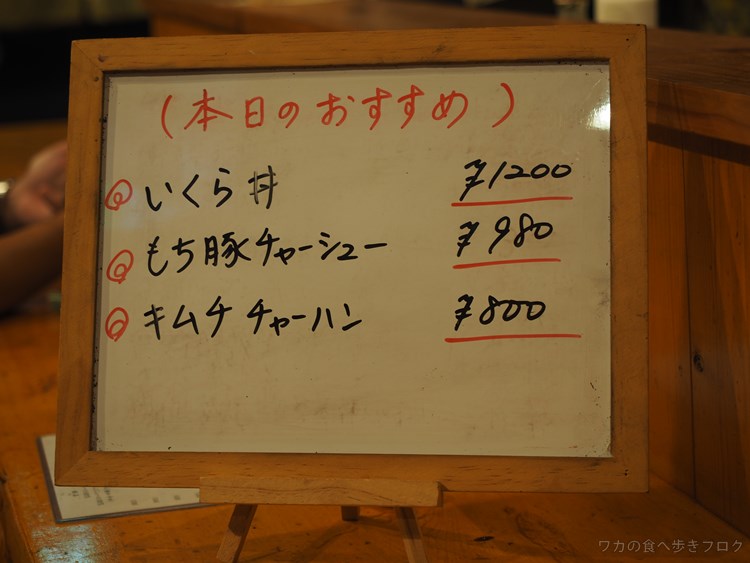 (本日のおすすめ)
いくら丼 ¥1200
もち豚チャーシュー ¥980
キムチチャーハン ¥800
ワカの食べ歩きブログ